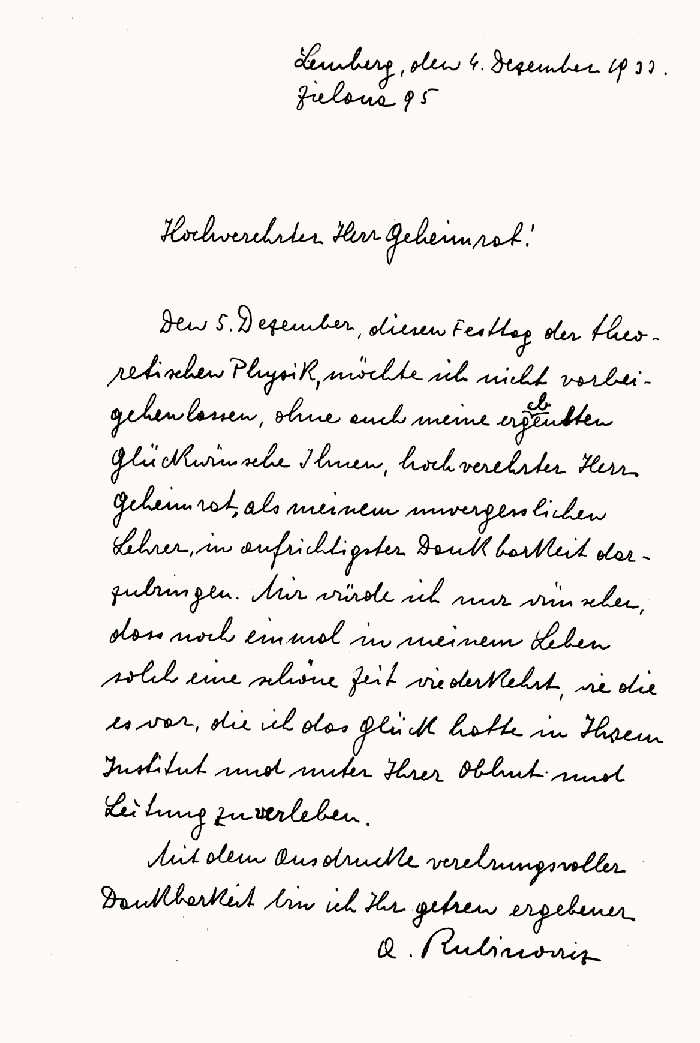 Lemberg, den 4. Dezember 1933.
Zielona 95
Hochverehrter Herr Geheimrat!
Den 5. Dezember, diesen Festtag der theo-
retischen Physik, möchte ich nicht vorbei-
gehen lassen, ohne auch meine ergebensten
Glückwünsche Ihnen, hochverehrter Herr
Geheimrat, als meinem unvergesslichen
Lehrer, in aufrichtigster Dankbarkeit dar-
zubringen. Mir würde ich nur wünschen,
dass noch einmal in meinem Leben
solch eine schöne Zeit wiederkehrt, wie die
es war, die ich das Glück hatte in Ihrem
Institut und unter Ihrer Obhut und
Leitung zu verleben.
Mit dem Ausdrucke verehrungsvoller
Dankbarkeit bin ich Ihr getreu ergebener
A. Rubinowicz